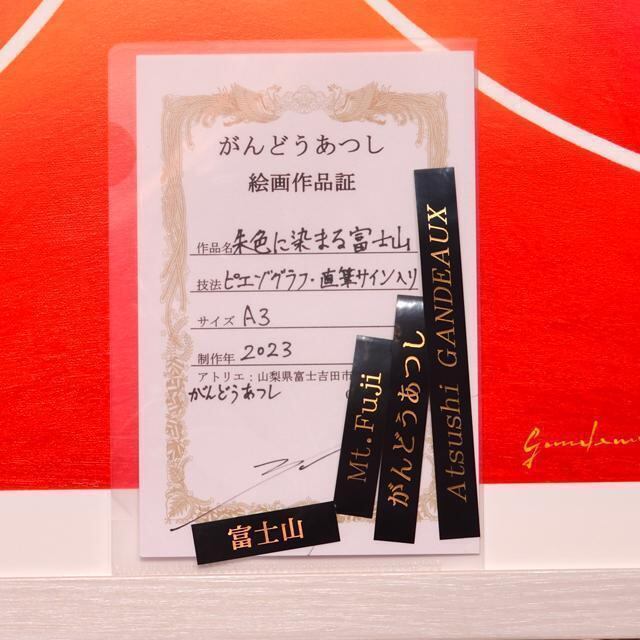 がんどうあつし
絵画作品証
作品名 朱色に染まる富士山
技法 ピエゾグラフ・直筆サイン入り
サイズ A3
制作年 2023
アトリエ：山梨県富士吉田市
がんどうあつし
富士山
Mt.Fuji
がんどうあつし
Atsushi GANDEAUX